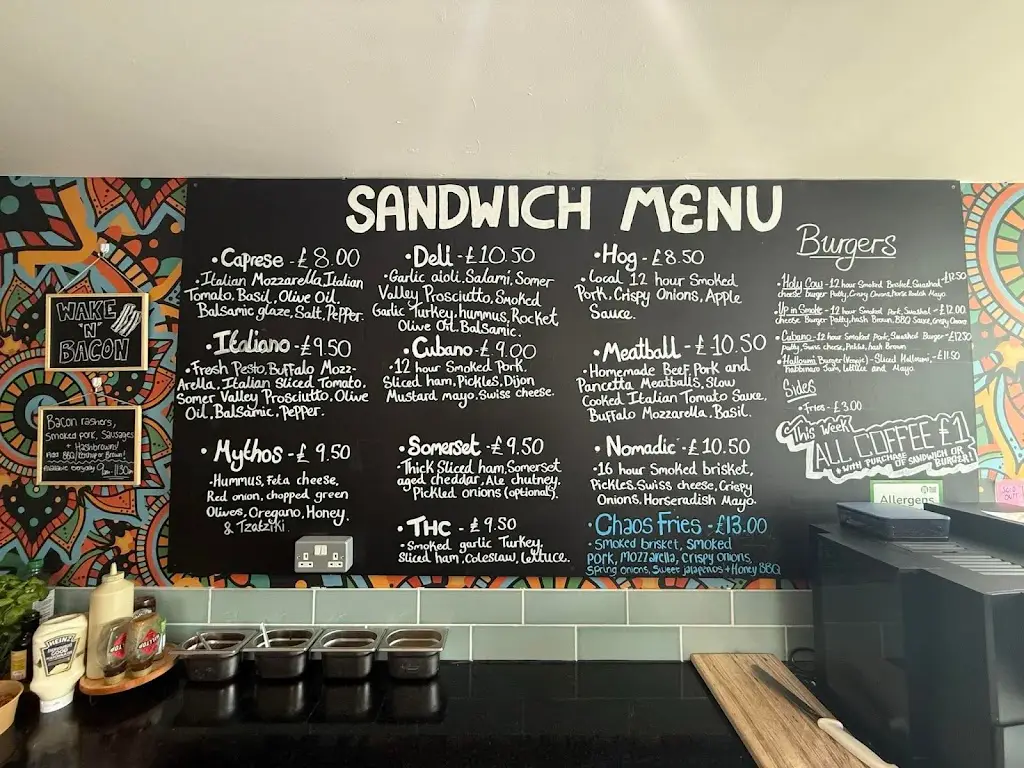 SANDWICH MENU
• Caprese - £8.00
• Italian Mozzarella, Italian
Tomato, Basil, Olive Oil.
Balsamic glaze, Salt, Pepper.
• Italiano - £9.50
• Fresh Pesto, Buffalo Mozz-
Arella, Italian Sliced Tomato,
Somer Valley Prosciutto, Olive
Oil, Balsamic, Pepper.
• Mythos - £9.50
• Hummus, Feta cheese,
Red onion, chopped green
Olives, Oregano, Honey.
& Tzatziki.
• Deli - £10.50
• Garlic aioli, Salami, Somer
Valley Prosciutto, Smoked
Garlic Turkey, hummus, Rocket
Olive Oil, Balsamic.
• Cubano - £9.00
• 12 hour Smoked Pork.
Sliced ham, Pickles, Dijon
Mustard mayo. Swiss cheese.
• Somerset - £9.50
• Thick Sliced ham, Somerset
aged cheddar, Ale chutney,
Pickled onions (optional).
• THC - £9.50
• Smoked garlic Turkey,
Sliced ham, Coleslaw, lettuce.
• Hog - £8.50
• Local 12 hour Smoked
Pork, Crispy Onions, Apple
Sauce.
• Meatball - £10.50
• Homemade Beef, Pork and
Pancetta Meatballs, Slow
Cooked Italian Tomato Sauce,
Buffalo Mozzarella, Basil.
• Nomadic - £10.50
• 16 hour Smoked brisket,
Pickles, Swiss cheese, Crispy
Onions, Horseradish Mayo.
• Chaos Fries - £13.00
• Smoked brisket, Smoked
pork, Mozzarella, crispy onions,
Spring onions, Sweet jalapeños + Honey BBQ
Burgers
• Holy Cow - 12 hour Smoked Brisket, Smashed - £12.50
cheese burger Patty, Crispy Onions, Horse Radish Mayo.
• Up in Smoke - 12 hour Smoked Pork, Smashed - £12.00
cheese Burger Patty, hash Brown, BBQ Sauce, Crispy Onions
• Cubano - 12 hour Smoked Pork, Smashed Burger - £12.50
patty, Swiss cheese, Pickle, hash Brown
• Halloumi Burger (Veggie) - Sliced Halloumi, - £11.50
Lettuce and Mayo.
Sides
• Fries - £3.00
This Week
ALL COFFEE £1
+ WITH PURCHASE OF SANDWICH OR
BURGER!
Allergens
WAKE
'N'
BACON
Bacon rashers,
Smoked pork, Sausages
+ Hashbrowns!
Add BBQ/Ketchup or Brown!
Available everyday 9am - 11:30am
HEINZ